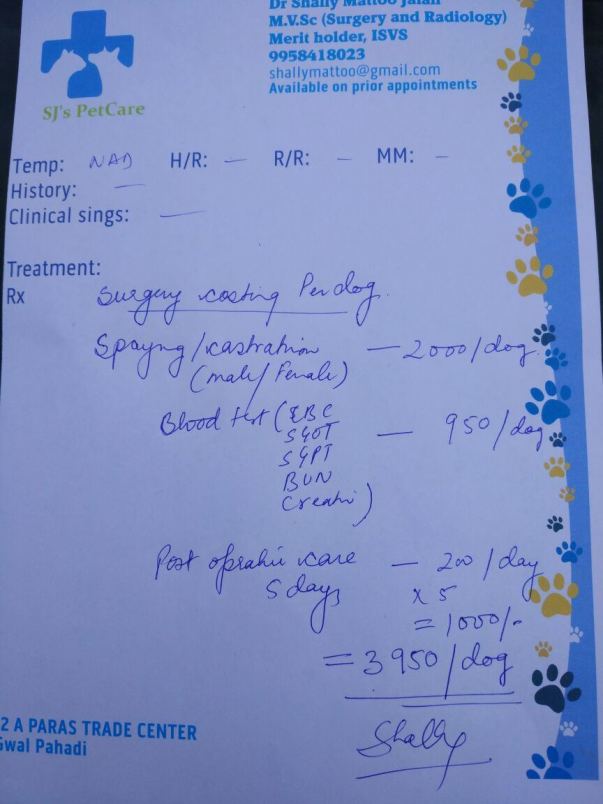 Dr Shally Mattoo Jalali
M.V.Sc (Surgery and Radiology)
Merit holder, ISVS
9958418023
shallymattoo@gmail.com
Available on prior appointments
SJ's PetCare
Temp: NAD H/R: - R/R: - MM: -
History: -
Clinical sings: -
Treatment:
Rx Surgery costing Per dog.
Spayng/castration - 2000/dog.
(male/Female)
Blood test (CBC
SGOT - 950/dog
SGPT
BUN
Creatni)
Post opratie care - 200/day
5 days x 5
= 1000/-
= 3950/dog
Shally
2 A PARAS TRADE CENTER
Gwal Pahadi